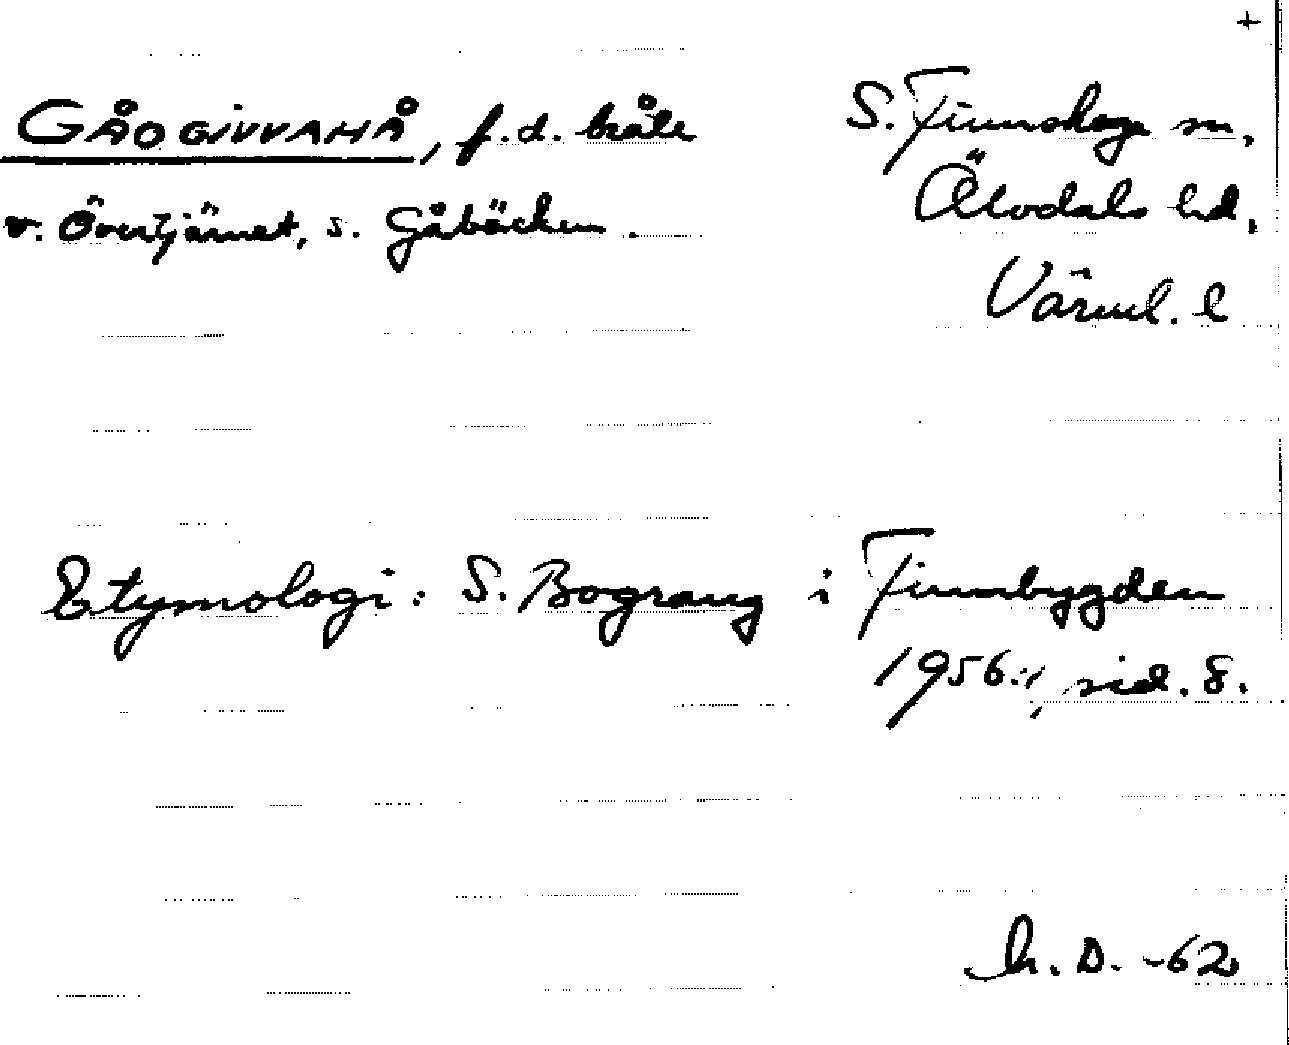 +
GÅOGIVVAHÅ, f.d. bråte
v. Övertjärnet, s. Gåbäcken.
S. Finnskoga sn,
Älvdals hd,
Värml. l
Etymologi: S. Bograng i Finnbygden
1956:1, sid. 8.
h. D. -62